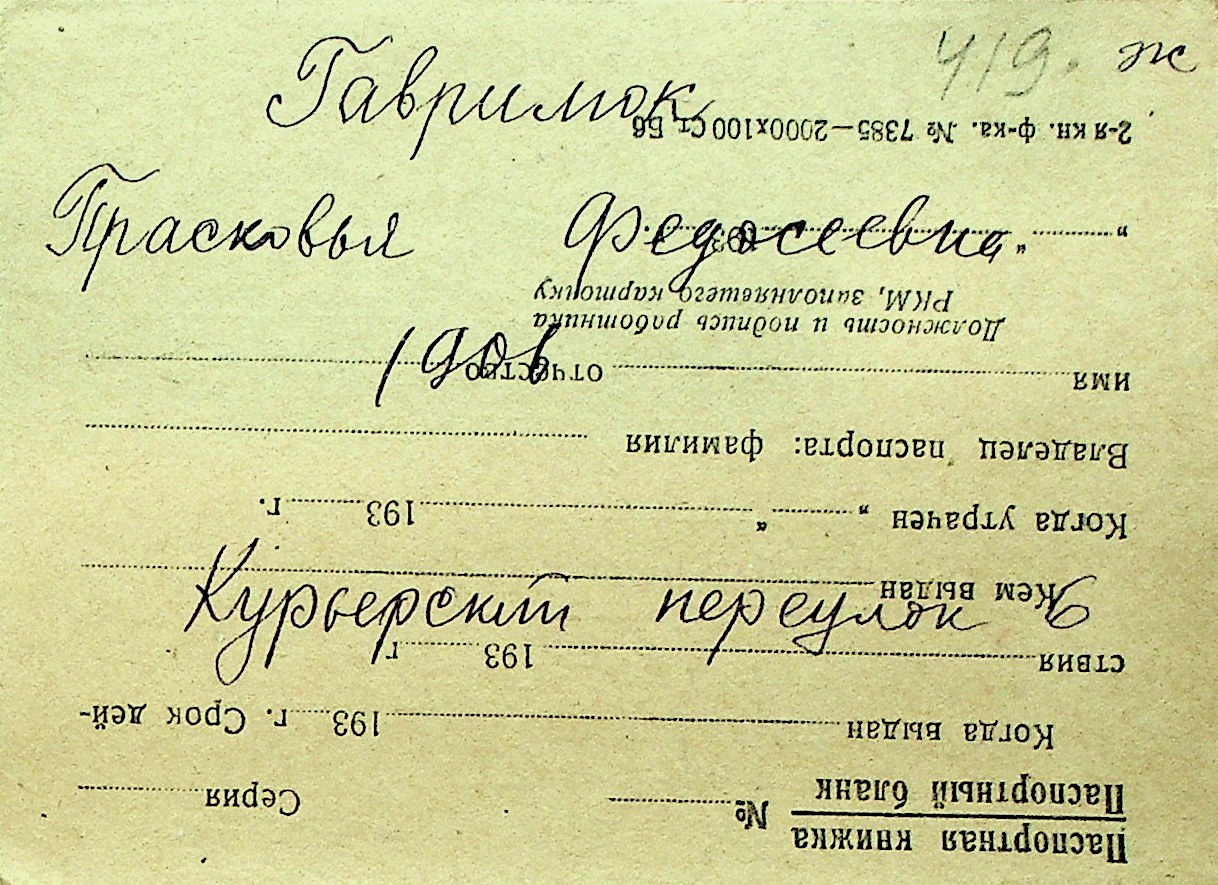 419. ж
Гаврилюк
Прасковья Федосеевна
1906
Курьерский переулок 6
Паспортная книжка
Паспортный бланк
№ Серия
Когда выдан 193 г. Срок дей-
ствия 193 г
Кем выдан
Когда утрачен „ “ 193 г.
Владелец паспорта: фамилия
имя отчество
Должность и подпись работника
РКМ, заполняшего карточку
„ “ 193
2-я кн. ф-ка. № 7385—2000х100 Ст Б6